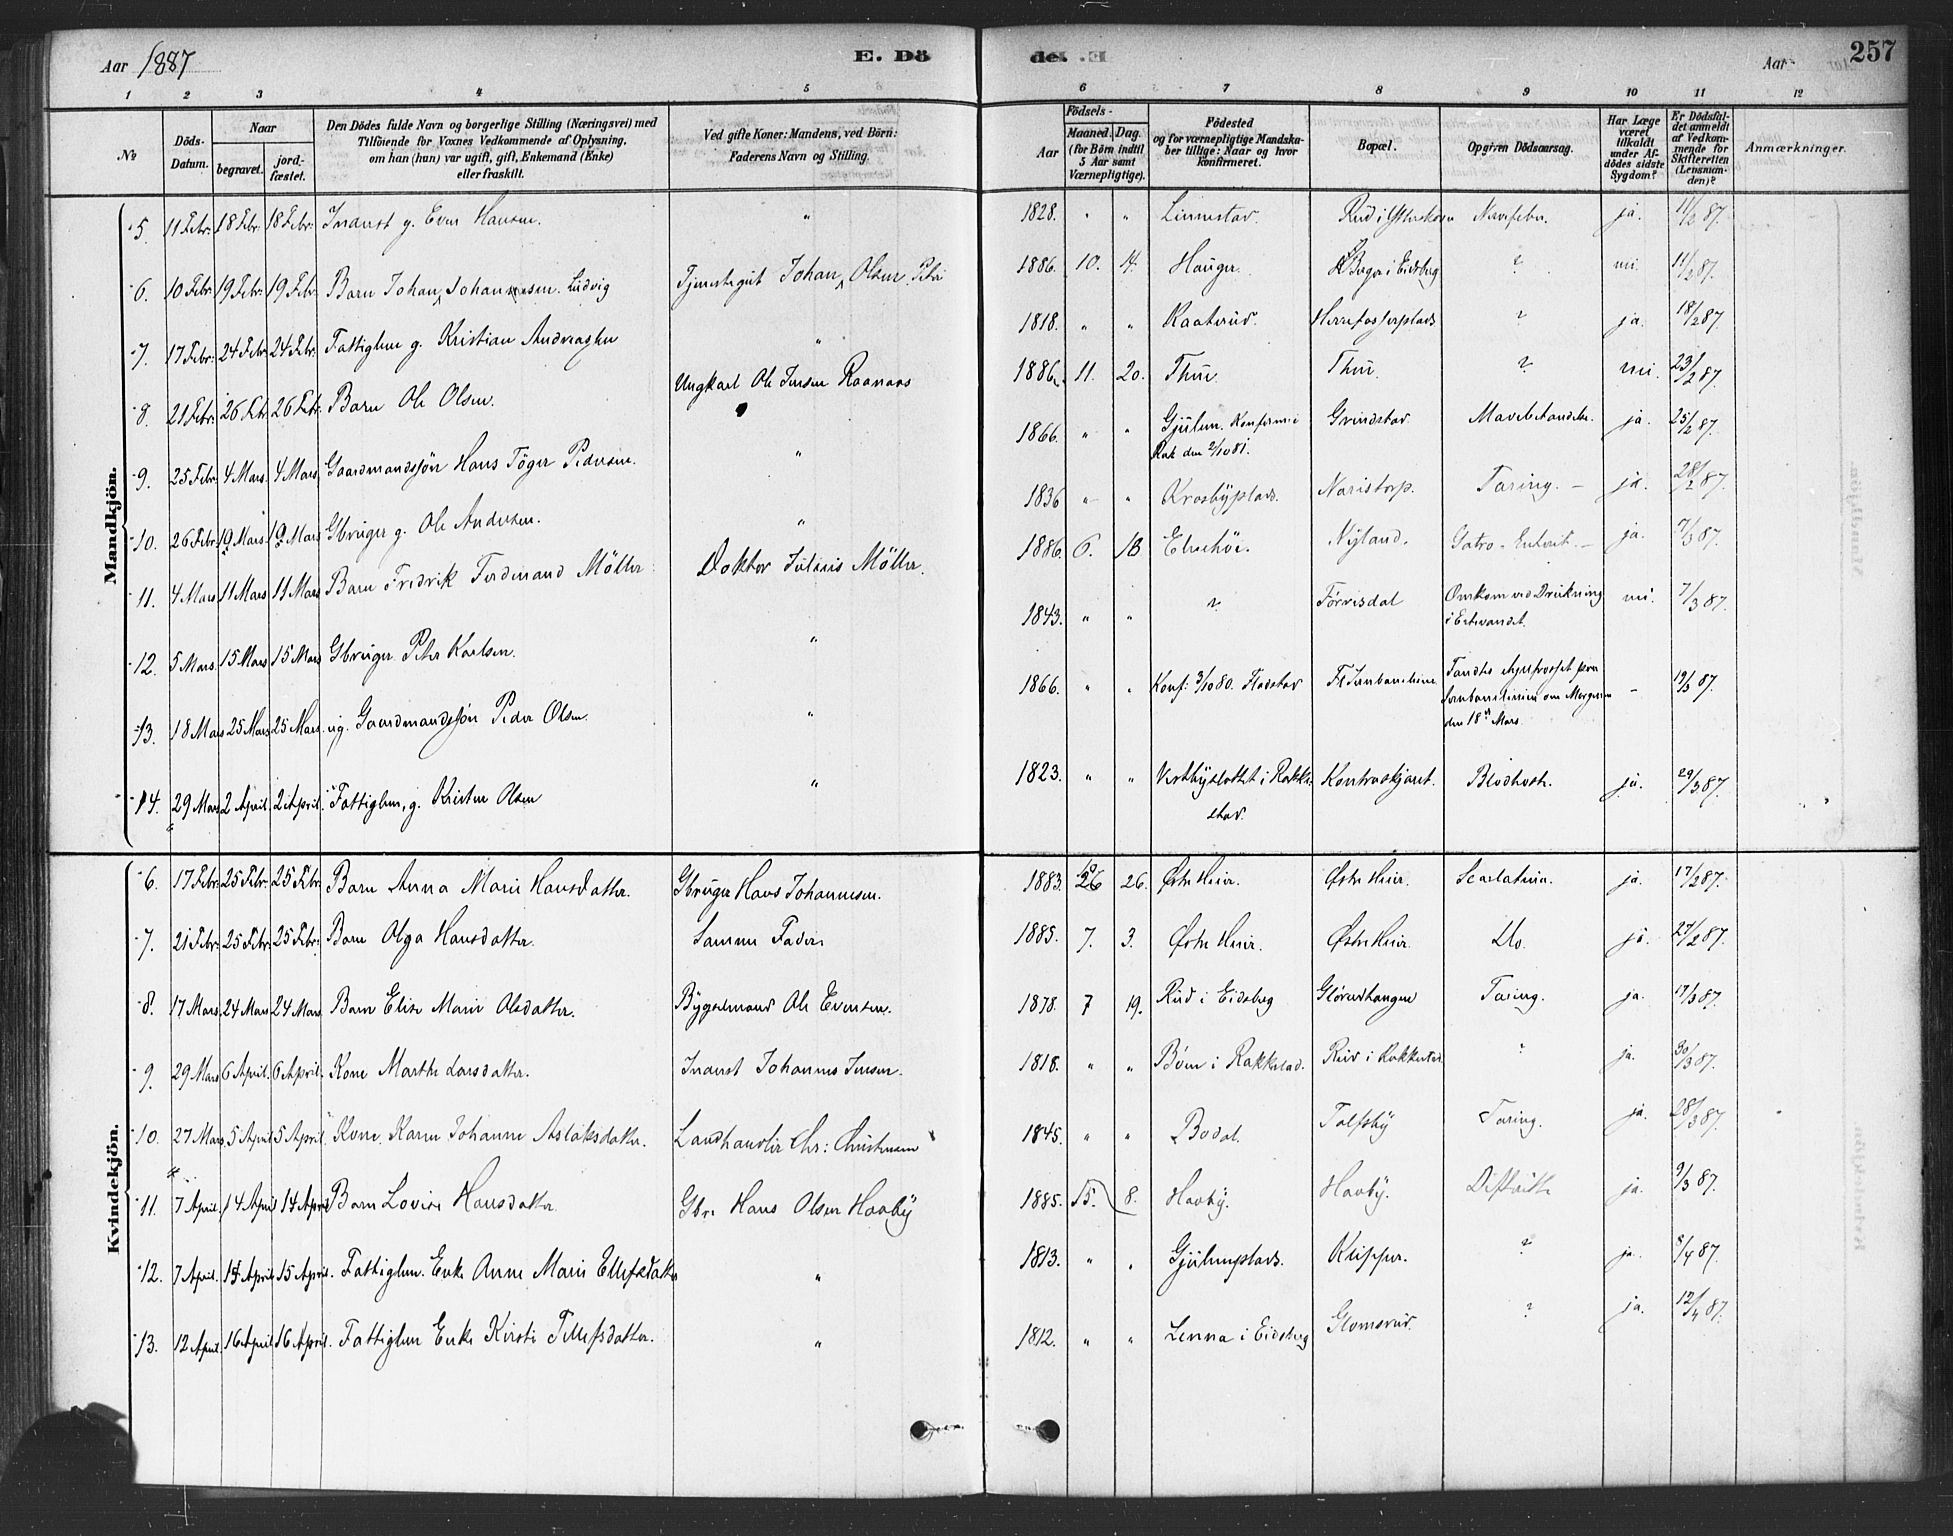 Aar 1887
E. Dö
de. E
Aar
257
1 2 3 4 5 6 7 8 9 10 11 12
No
Döds-Datum.
Naar
begravet.
jord-fæstet.
Den Dödes fulde Navn og borgerlige Stilling (Næringsvei) med
Tilföiende for Voxnes Vedkommende af Oplysning,
om han (hun) var ugift, gift, Enkemand (Enke)
eller fraskilt.
Ved gifte Koner: Mandens, ved Börn:
Faderens Navn og Stilling.
Födsels-
Aar
Maaned. Dag.
(for Börn indtil
5 Aar samt
Værnepligtige).
Födested
og for værnepligtige Mandska-
ber tillige: Naar og hvor
konfirmeret.
Bopæl.
Opgiven Dödsaarsag.
Har Læge
været
tilkaldt
under Af-
dödes sidste
Sygdom?
Er Dödsfal-
det anmeldt
af Vedkom-
mende for
Skifteretten
(Lensman-
den)?
Anmærkninger.
Mandkjön.
5. 11 Febr. 18 Febr. 18 Febr. Inderst g. Even Hansen. " 1828. " " Linnestad. Rud i Nervefeber. ja. 11/2 87.
6. 10 Febr. 19 Febr. 19 Febr. Barn Johan Johannesen. Ludvig Tjenestegut Johan Olsen Petri 1886. 10. 14. Hauger. Berger i Eidsberg ? nei. 11/2 87.
7. 17 Febr. 24 Febr. 24 Febr. Fattiglem g. Kristian Andreassen " 1818. " " Kaaterud. ? ja. 18/2 87.
8. 21 Febr. 26 Febr. 26 Febr. Barn Ole Olsen. Ungkarl Ole Jensen Raanaas 1886. 11. 20. Thue Thue. ? nei. 23/2 87.
9. 25 Febr. 4 Mars. 4 Mars. Gaardmandssøn Hans Töger Pedersen. " 1866. " " Gjulem. Konfirm. i Rak den 2/10 81. Grindstad Mavebetændelse. ja. 25/2 87.
10. 26 Febr. 19 Mars. 19 Mars Gbruger g. Ole Andersen. " 1836 " " Krosbyplads. Naristorp. Tæring. – ja. 28/2 87.
11. 4 Mars 11 Mars 11 Mars Barn Fredrik Ferdinand Möller. Doktor Julius Möller. 1886. 6. 18 Elvehöi. Nyland. Gatro-Enterit. – ja. 7/3 87.
12. 5 Mars. 15 Mars 15 Mars Gbruger Peter Karlsen. " 1843. " " ? Törrisdal Omkom ved Drukning i Ertevandet. nei. 7/3 87.
13. 18 Mars 25 Mars 25 Mars. ug. Gaardmandssøn Peder Olsen. " 1866. " " Konf: 3/10 80. Fladstad Jernbanelinien om Morgenen den 18de Mars. – 19/3 87.
14. 29 Mars 2 April 2 April. Fattiglem, g. Kristen Olsen " 1823. " " i Rakke-stad. Kontraskjæret. Blodhoste. ja. 29/3 87.
Kvindekjön.
6. 17 Febr. 25 Febr. 25 Febr. Barn Anna Marie Hansdatter. Gbruger Hans Johannesen. 1883. 26. Østre Huer. Østre Huer. Scarlatina. ja. 17/2 87.
7. 21 Febr. 25 Febr. 25 Febr. Barn Olga Hansdatter. Samme Fader 1885. 7. 3. Østre Huer. Østre Huer. Do. ja. 21/2 87.
8. 17 Mars. 24 Mars 24 Mars. Barn Elise Marie Olsdatter. Bygselmand Ole Evensen. 1878. 7 19. Rud i Eidsberg Tæring. ja. 17/3 87.
9. 29 Mars 6 April. 6 April. Kone Marthe Larsdatter. Inderst Johannes Jensen. 1818. " " Böen i Rakkestad. Rud i Rakkestad ? ja. 30/3 87.
10. 27 Mars 5 April 5 April. Kone Karen Johanne Aslaksdatter. Landhandler Chr: Christensen 1845. " " Bodal. Tolfsby Tæring. ja. 28/3 87.
11. 7 April. 14 April 14 April Barn Lovise Hansdatter. Gbr. Hans Olsen Haaby 1885. 15. 8. Haaby. Haaby. Difterite ja. 9/3 87.
12. 7 April. 15 April 15 April. Fattiglem. Enke Anne Marie Ellefsdatter " 1813. " " Gjulemplads. Kripper. ? ja. 8/4 87.
13. 12 April 16 April 16 April. Fattiglem Enke Kirsti Tellefsdatter. " 1812. " " Lenna i Eidsberg Glomsrud. ? ja. 12/4 87.